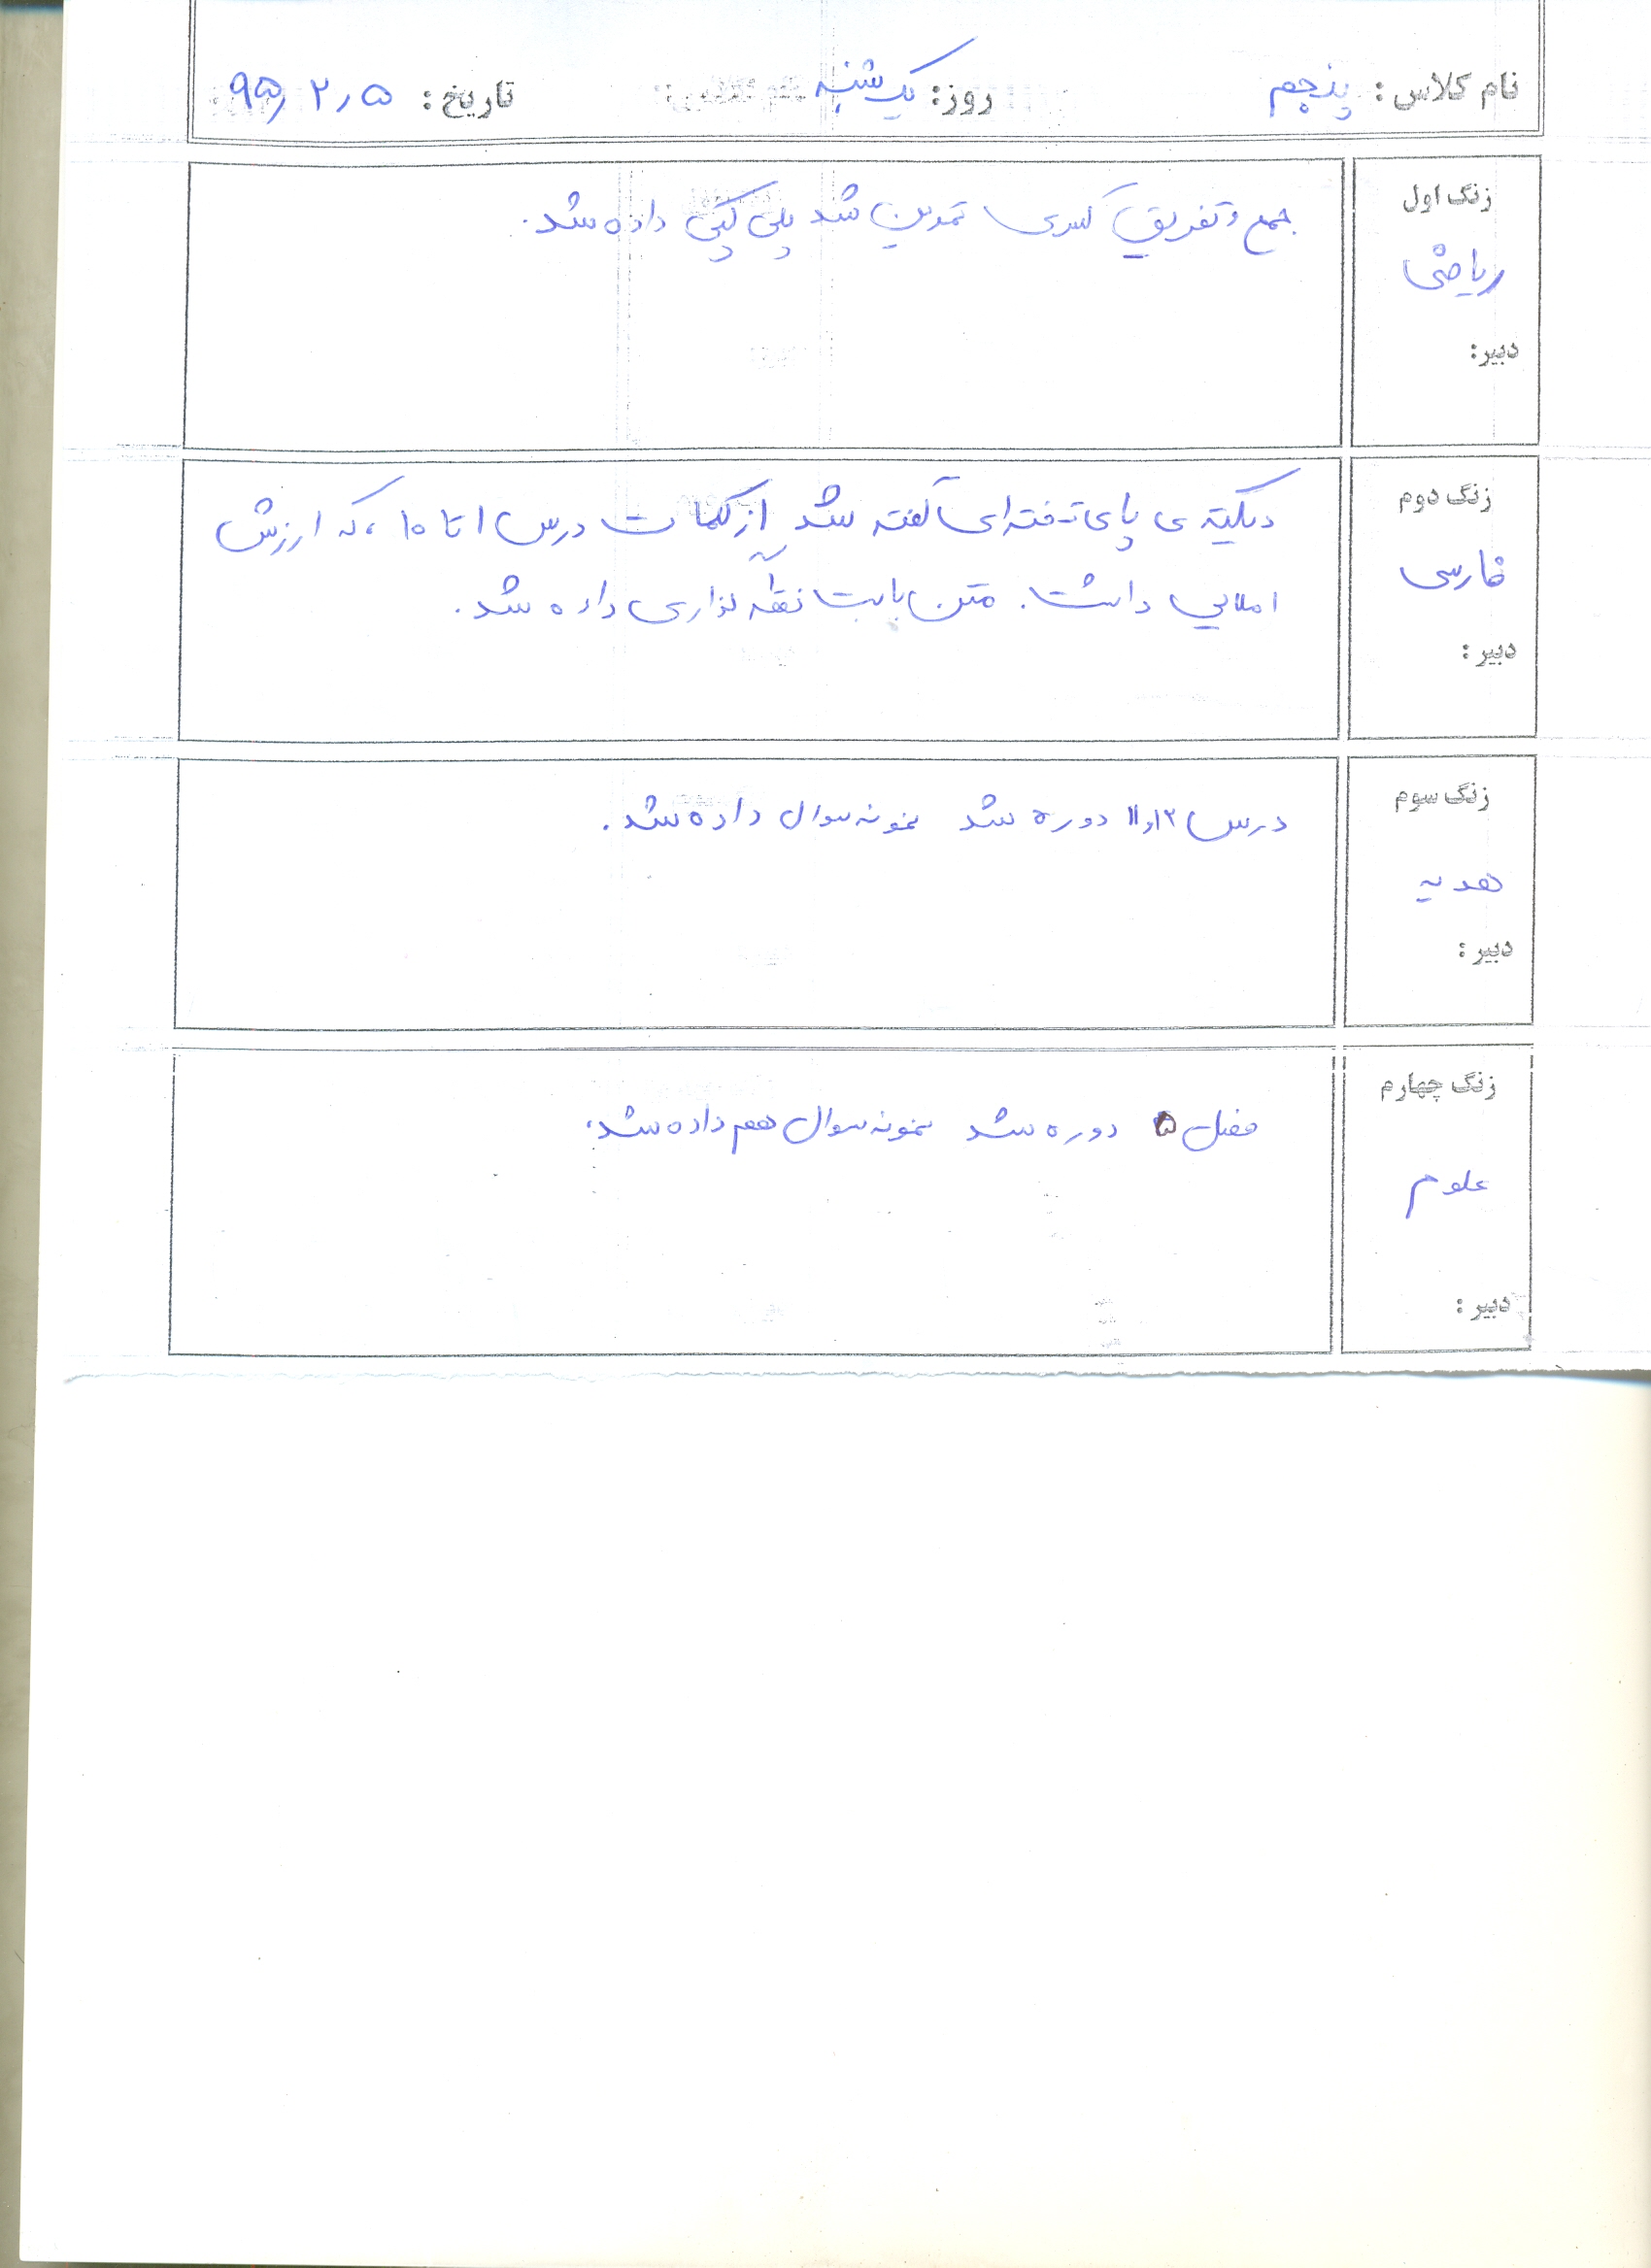 نام کلاس : پنجم روز: یک شنبه تاریخ : ۹۵٫۲٫۵
زنگ اول
ریاضی
دبیر:
جمع و تفریق کسری تمرین شد پلی کپی داده شد.
زنگ دوم
فارسی
دبیر :
دیکته ی پای تخته ای گفته شد از کلمات درس ۱ تا ۱۰ ، که ارزش
املایی داشت. متن بابت نقطه گذاری داده شد.
زنگ سوم
هدیه
دبیر :
درس ۱۳و۱۱ دوره شد نمونه سوال داده شد.
زنگ چهارم
علوم
دبیر :
فصل ۵ دوره شد نمونه سوال هم داده شد.